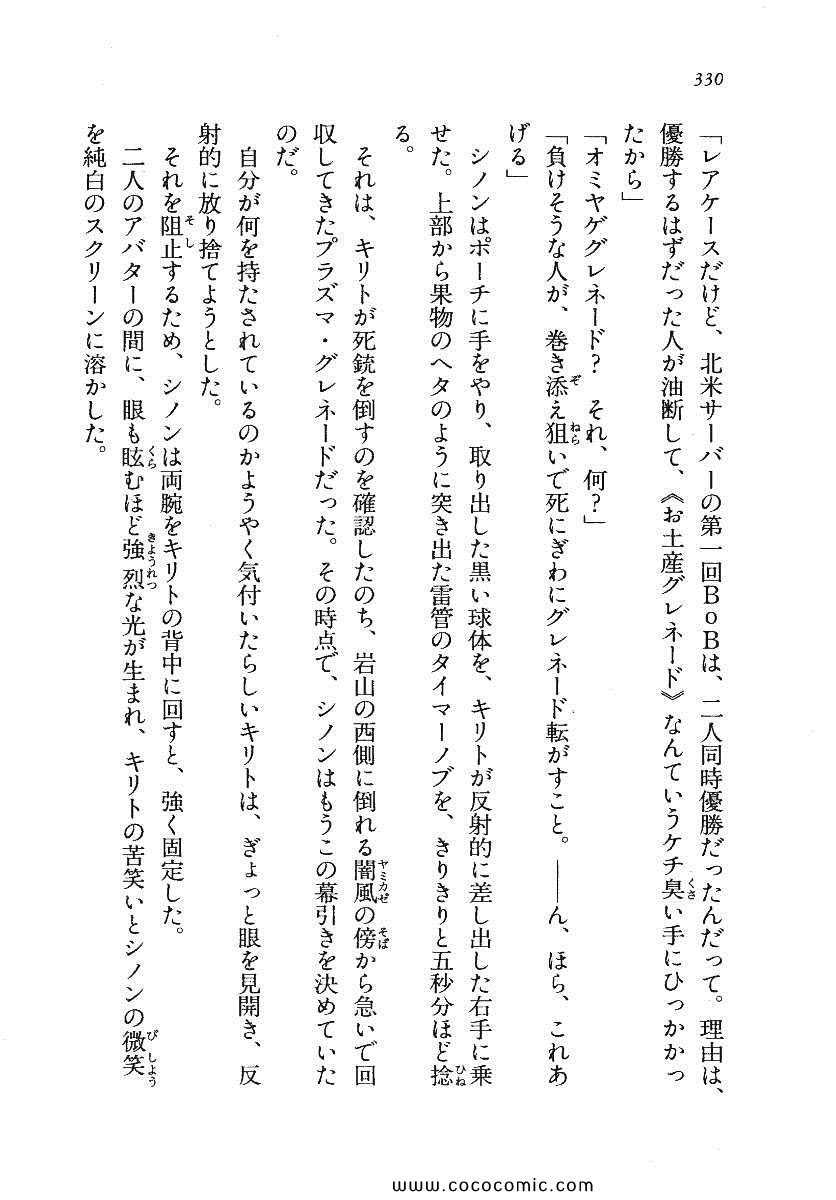 330
「レアケースだけど、北米サーバーの第一回BoBは、二人同時優勝だったんだって。理由は、
優勝するはずだった人が油断して、《お土産グレネード》なんていうケチ臭い手にひっかかっ
たから」
「オミヤゲグレネード？　それ、何？」
「負けそうな人が、巻き添え狙いで死にぎわにグレネード転がすこと。――ん、ほら、これあ
げる」
　シノンはポーチに手をやり、取り出した黒い球体を、キリトが反射的に差し出した右手に乗
せた。上部から果物のヘタのように突き出た雷管のタイマーノブを、きりきりと五秒分ほど捻
る。
　それは、キリトが死銃を倒すのを確認したのち、岩山の西側に倒れる闇風の傍から急いで回
収してきたプラズマ・グレネードだった。その時点で、シノンはもうこの幕引きを決めていた
のだ。
　自分が何を持たされているのかようやく気付いたらしいキリトは、ぎょっと眼を見開き、反
射的に放り捨てようとした。
　それを阻止するため、シノンは両腕をキリトの背中に回すと、強く固定した。
　二人のアバターの間に、眼も眩むほど強烈な光が生まれ、キリトの苦笑いとシノンの微笑
を純白のスクリーンに溶かした。
www.cococomic.com